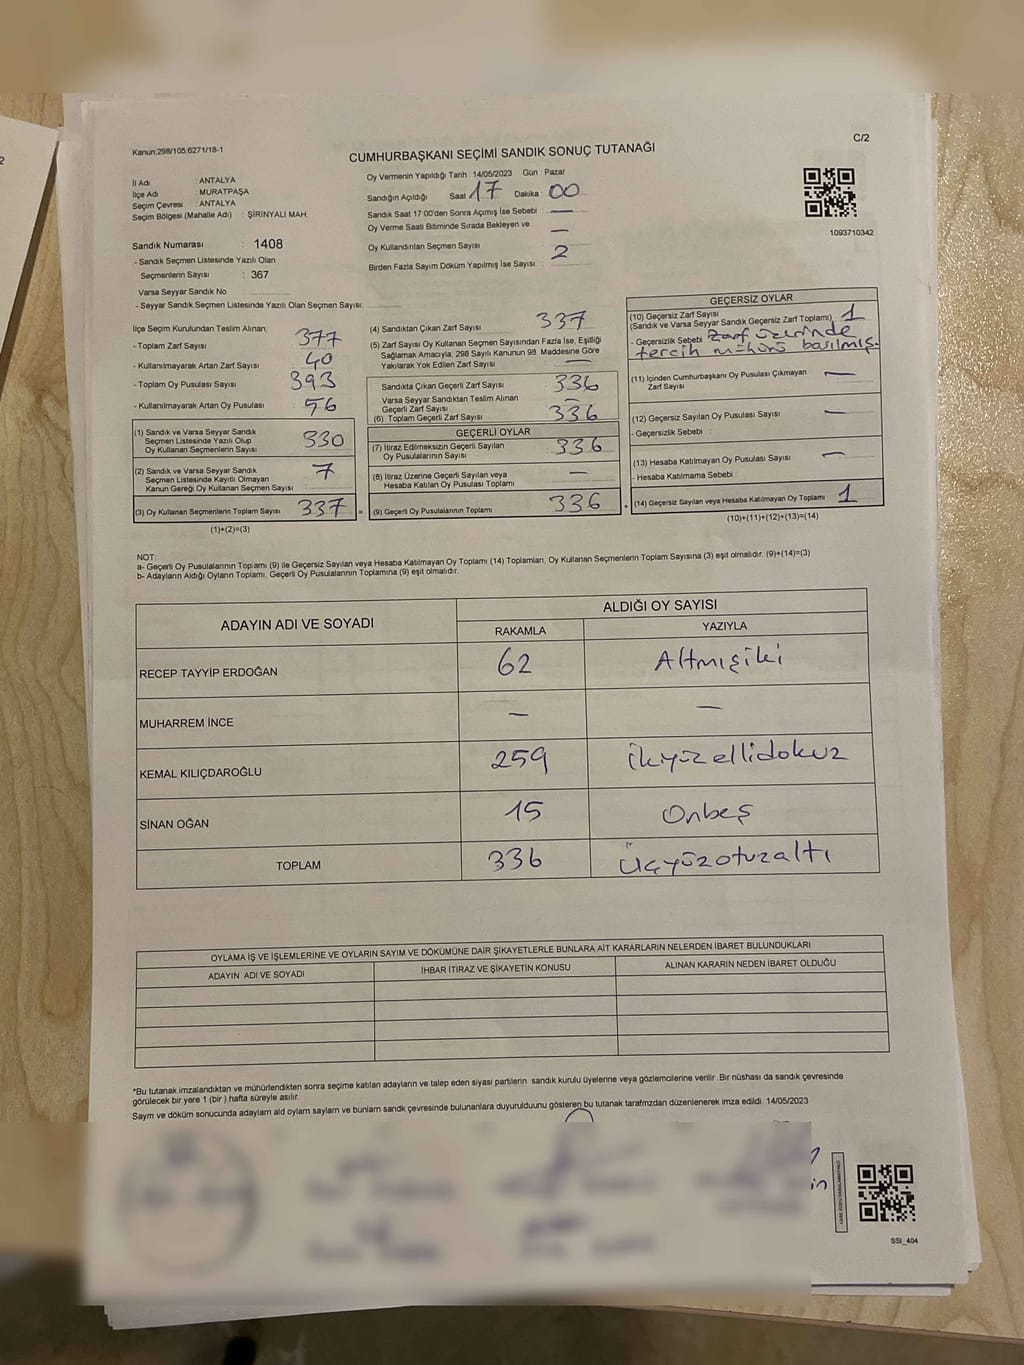 C/2
Kanun:298/105,6271/18-1
CUMHURBAŞKANI SEÇİMİ SANDIK SONUÇ TUTANAĞI
İl Adı : ANTALYA
İlçe Adı : MURATPAŞA
Seçim Çevresi : ANTALYA
Seçim Bölgesi (Mahalle Adı) : ŞİRİNYALI MAH.
Sandık Numarası : 1408
- Sandık Seçmen Listesinde Yazılı Olan
Seçmenlerin Sayısı : 367
Varsa Seyyar Sandık No
- Seyyar Sandık Seçmen Listesinde Yazılı Olan Seçmen Sayısı:
Oy Vermenin Yapıldığı Tarih : 14/05/2023 Gün : Pazar
Sandığın Açıldığı Saat 17 Dakika : 00
Sandık Saat 17:00'den Sonra Açımış İse Sebebi : —
Oy Verme Saati Bitiminde Sırada Bekleyen ve
Oy Kullandırılan Seçmen Sayısı : —
Birden Fazla Sayım Döküm Yapılmış İse Sayısı : 2
1093710342
İlçe Seçim Kurulundan Teslim Alınan;
- Toplam Zarf Sayısı : 377
- Kullanılmayarak Artan Zarf Sayısı : 40
- Toplam Oy Pusulası Sayısı : 393
- Kullanılmayarak Artan Oy Pusulası : 56
(1) Sandık ve Varsa Seyyar Sandık
Seçmen Listesinde Yazılı Olup
Oy Kullanan Seçmenlerin Sayısı : 330
(2) Sandık ve Varsa Seyyar Sandık
Seçmen Listesinde Kayıtlı Olmayan
Kanun Gereği Oy Kullanan Seçmen Sayısı : 7
(3) Oy Kullanan Seçmenlerin Toplam Sayısı : 337
(1)+(2)=(3)
(4) Sandıktan Çıkan Zarf Sayısı : 337
(5) Zarf Sayısı Oy Kullanan Seçmen Sayısından Fazla İse, Eşitliği
Sağlamak Amacıyla, 298 Sayılı Kanunun 98. Maddesine Göre
Yakılarak Yok Edilen Zarf Sayısı : —
Sandıkta Çıkan Geçerli Zarf Sayısı : 336
Varsa Seyyar Sandıktan Teslim Alınan
Geçerli Zarf Sayısı : —
(6) Toplam Geçerli Zarf Sayısı : 336
GEÇERLİ OYLAR
(7) İtiraz Edilmeksizin Geçerli Sayılan
Oy Pusulalarının Sayısı : 336
(8) İtiraz Üzerine Geçerli Sayılan veya
Hesaba Katılan Oy Pusulası Toplamı : —
(9) Geçerli Oy Pusulalarının Toplamı : 336
GEÇERSİZ OYLAR
(10) Geçersiz Zarf Sayısı
(Sandık ve Varsa Seyyar Sandık Geçersiz Zarf Toplamı) : 1
- Geçersizlik Sebebi : Zarf üzerinde
tercih mührü basılmış.
(11) İçinden Cumhurbaşkanı Oy Pusulası Çıkmayan
Zarf Sayısı : —
(12) Geçersiz Sayılan Oy Pusulası Sayısı : —
- Geçersizlik Sebebi :
(13) Hesaba Katılmayan Oy Pusulası Sayısı : —
- Hesaba Katılmama Sebebi :
(14) Geçersiz Sayılan veya Hesaba Katılmayan Oy Toplamı : 1
(10)+(11)+(12)+(13)=(14)
NOT:
a- Geçerli Oy Pusulalarının Toplamı (9) ile Geçersiz Sayılan veya Hesaba Katılmayan Oy Toplamı (14) Toplamları, Oy Kullanan Seçmenlerin Toplam Sayısına (3) eşit olmalıdır. (9)+(14)=(3)
b- Adayların Aldığı Oyların Toplamı, Geçerli Oy Pusulalarının Toplamına (9) eşit olmalıdır.
ADAYIN ADI VE SOYADI ALDIĞI OY SAYISI
RAKAMLA YAZIYLA
RECEP TAYYİP ERDOĞAN 62 Altmışiki
MUHARREM İNCE — —
KEMAL KILIÇDAROĞLU 259 ikiyüzellidokuz
SİNAN OĞAN 15 Onbeş
TOPLAM 336 Üçyüzotuzaltı
OYLAMA İŞ VE İŞLEMLERİNE VE OYLARIN SAYIM VE DÖKÜMÜNE DAİR ŞİKAYETLERLE BUNLARA AİT KARARLARIN NELERDEN İBARET BULUNDUKLARI
ADAYIN ADI VE SOYADI İHBAR İTİRAZ VE ŞİKAYETİN KONUSU ALINAN KARARIN NEDEN İBARET OLDUĞU
*Bu tutanak imzalandıktan ve mühürlendikten sonra seçime katılan adayların ve talep eden siyasi partilerin sandık kurulu üyelerine veya gözlemcilerine verilir. Bir nüshası da sandık çevresinde
görülecek bir yere 1 (bir ) hafta süreyle asılır.
Sayım ve döküm sonucunda adayların aldığı oyların sayıları ve bunların sandık çevresinde bulunanlara duyurulduğunu gösteren bu tutanak tarafımızdan düzenlenerek imza edildi. 14/05/2023
SSI_404